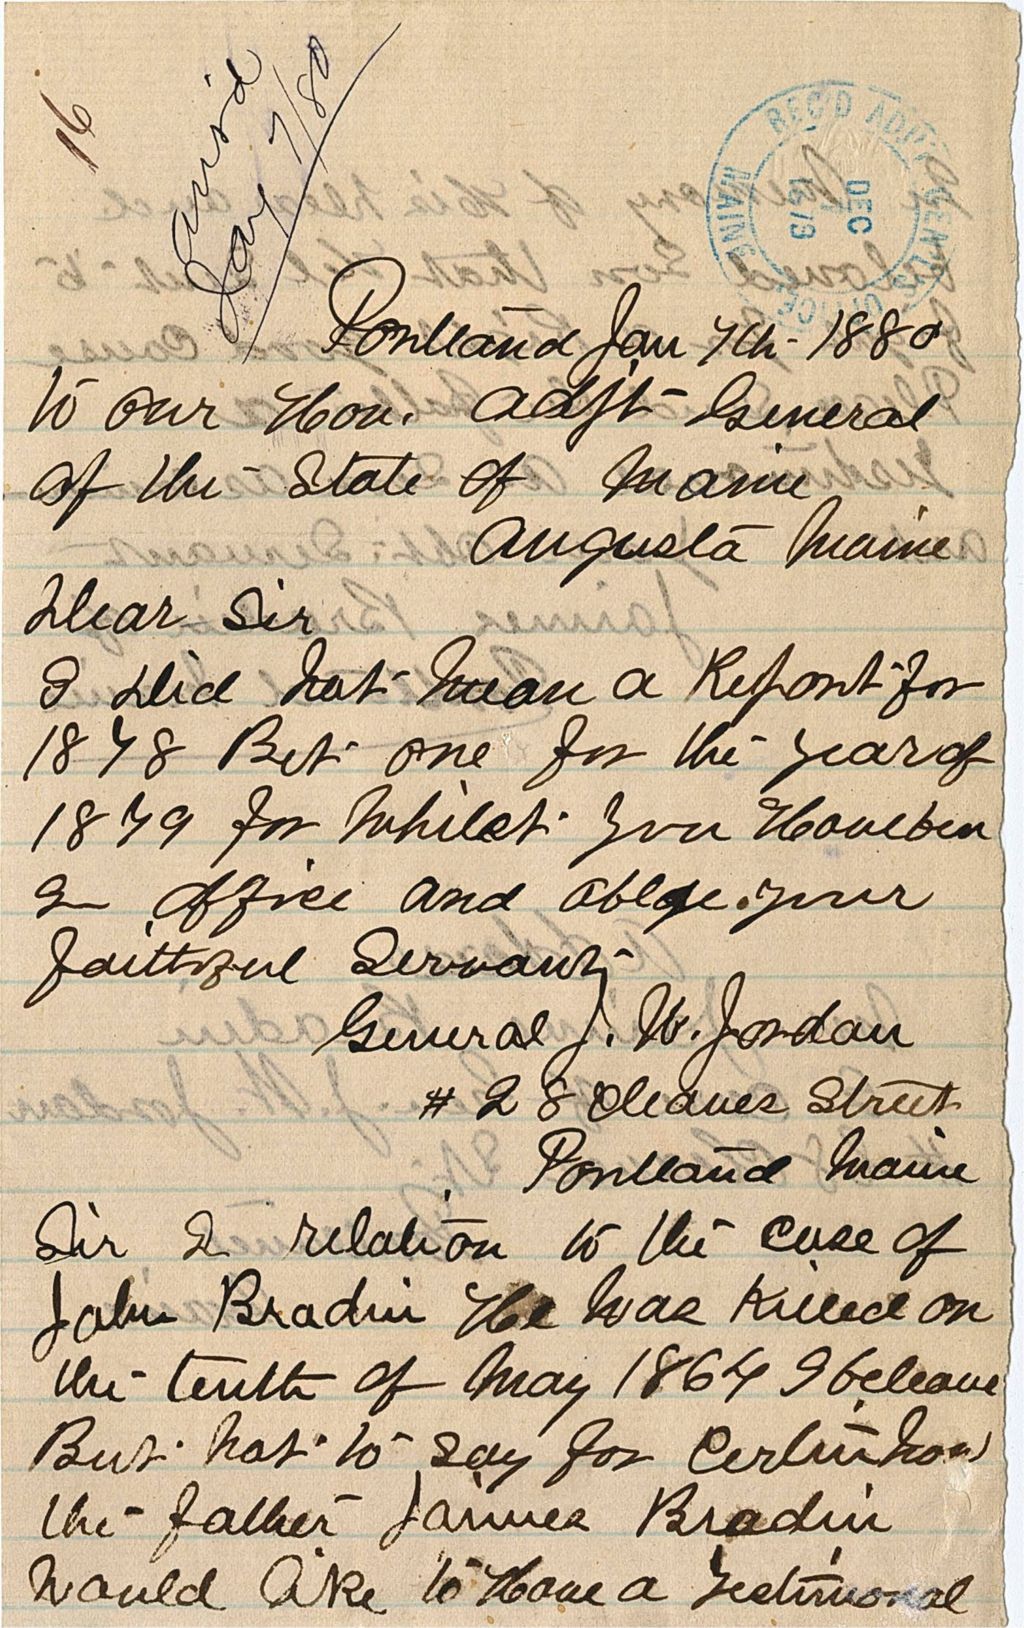 16
ans'd
Jay 7/80
REC'D ADJT GENL'S OFFICE
DEC
1879
MAINE
Portland Jan 7th 1880
to our Hon. Adjt General
of the State of Maine
Augusta Maine
Dear Sir
I Did not mean a Report for
1878 But one for the year of
1879 for Whilst you Have ben
In office and oblge your
faithful Servant
General J. W. Jordan
# 28 Cleaves Street
Portland Maine
Sir In relation to the Case of
John Bradin He was Killed on
the tenth of May 1864 I beleave
But not to say for Certin now
the father Jaimes Bradin
Would like to Have a Testimonal